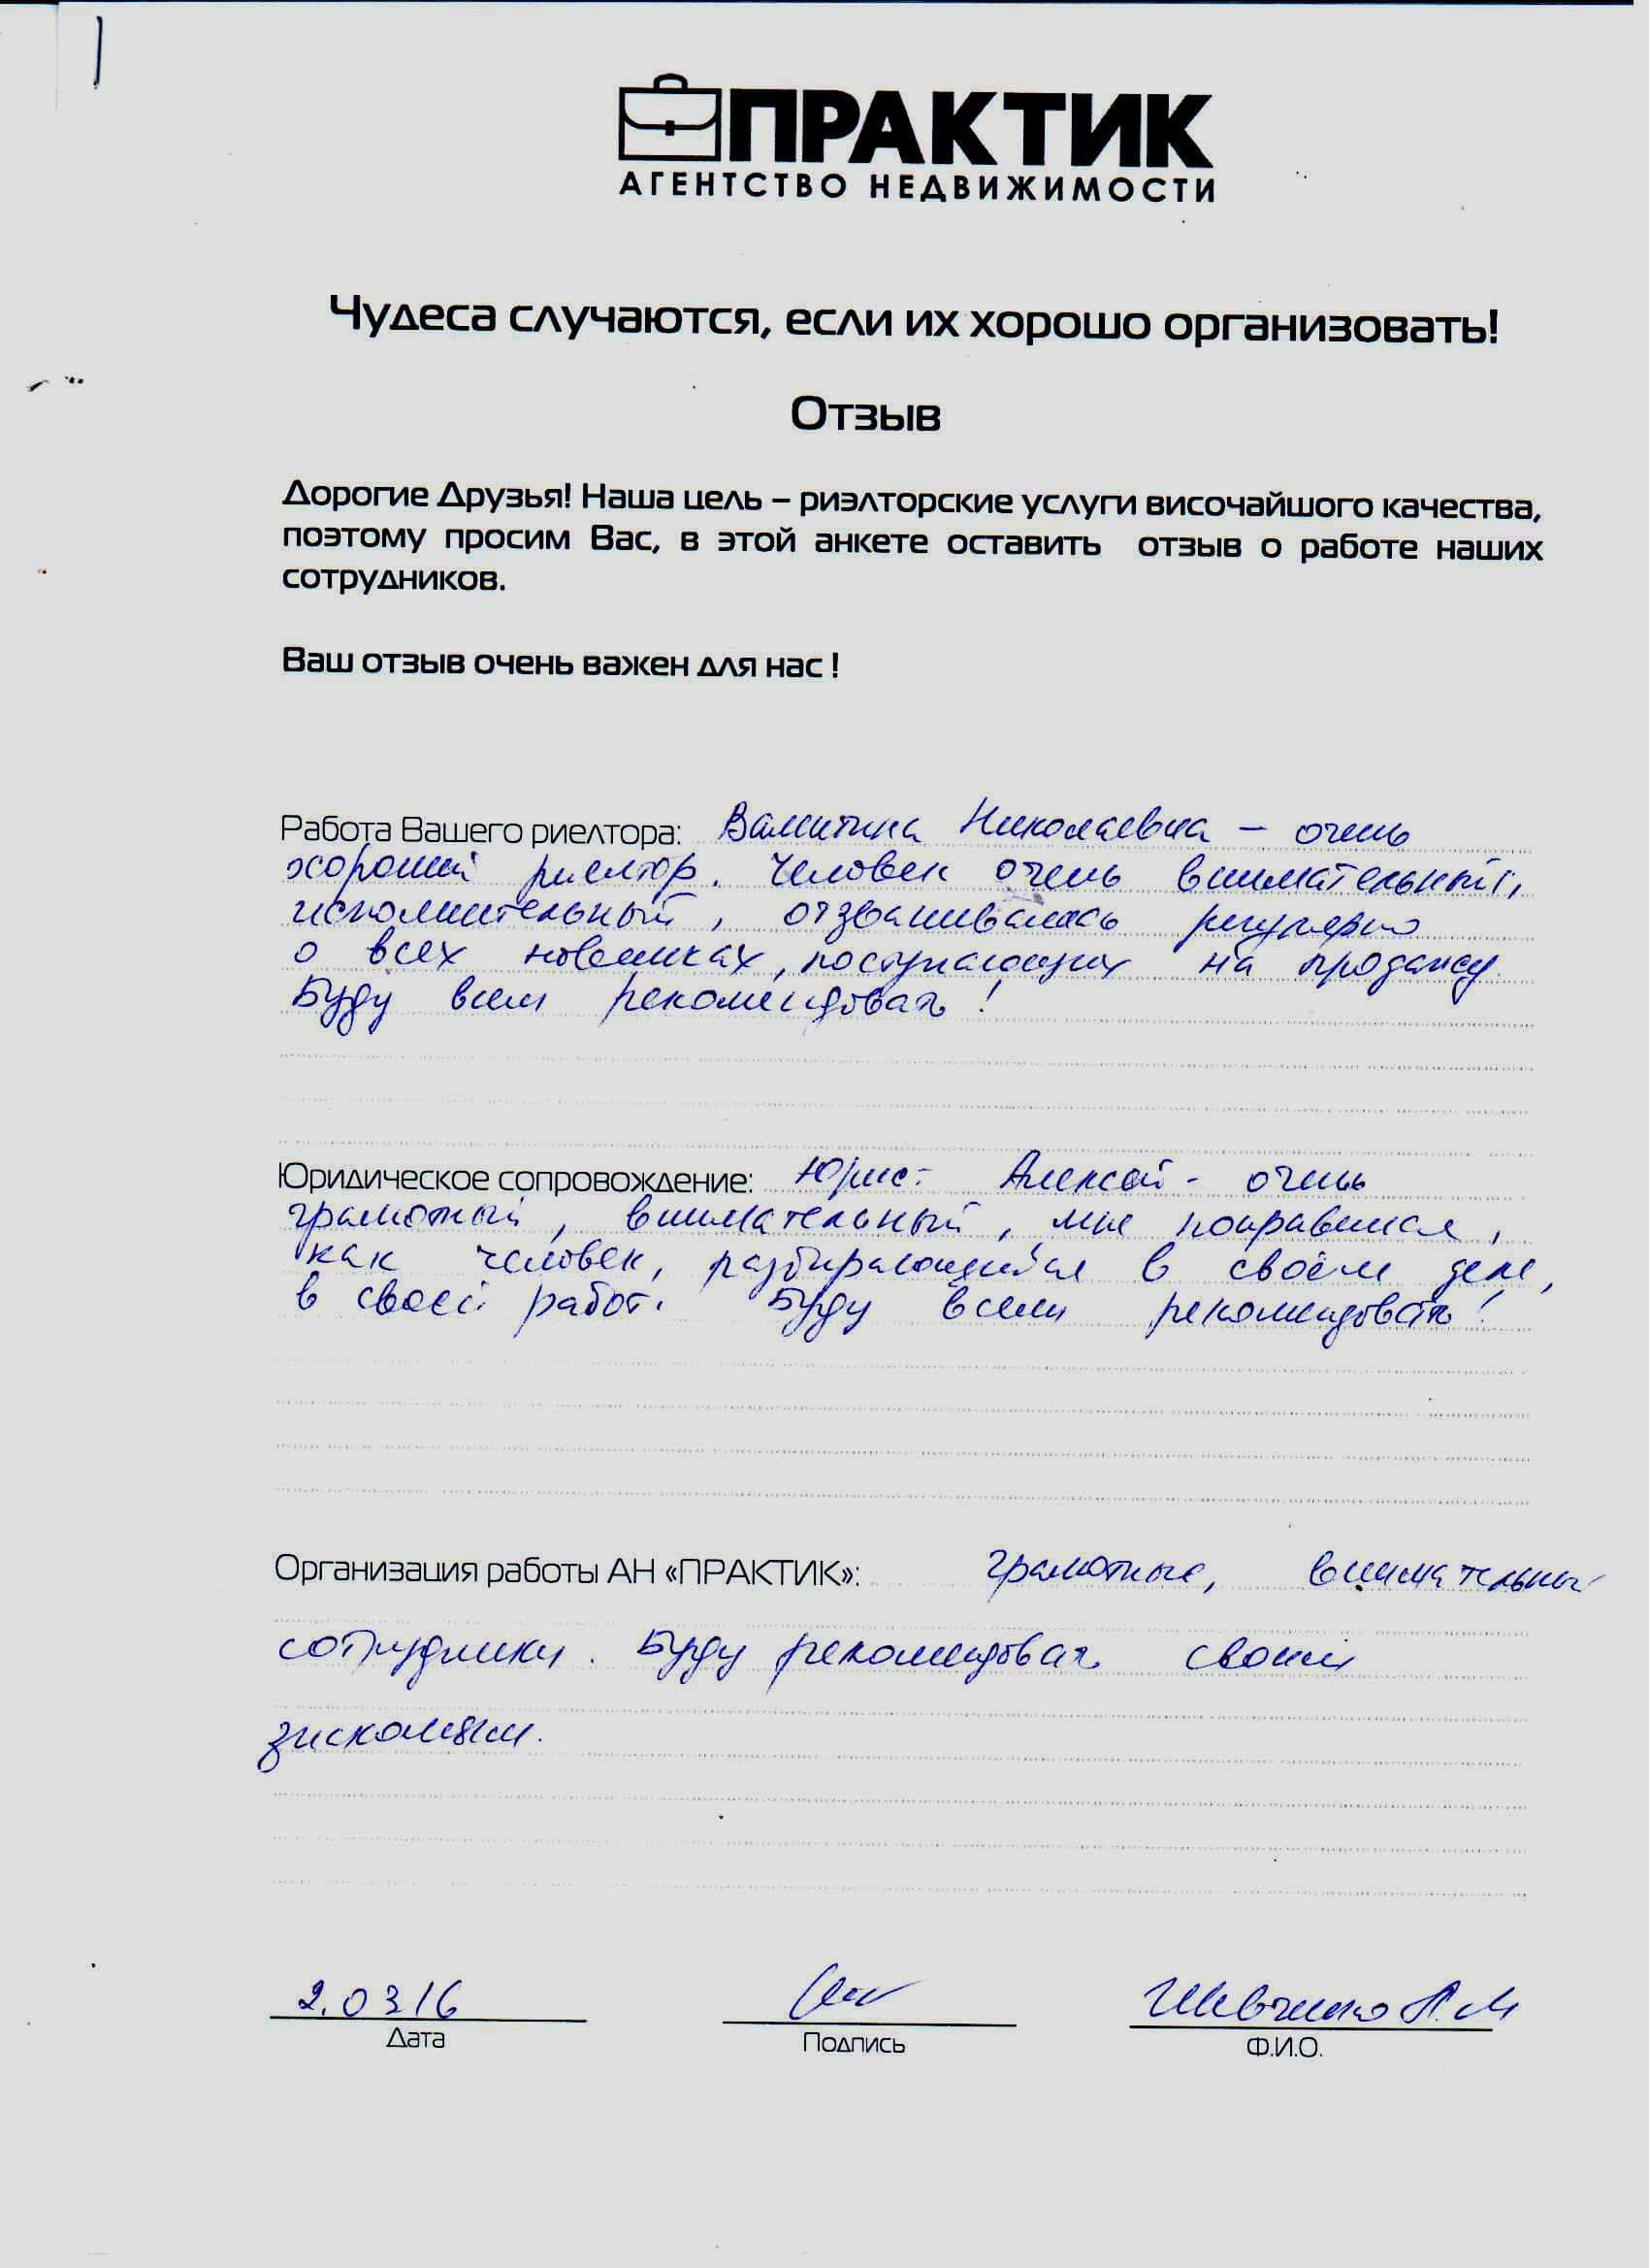 ПРАКТИК
АГЕНТСТВО НЕДВИЖИМОСТИ
Чудеса случаются, если их хорошо организовать!
Отзыв
Дорогие Друзья! Наша цель – риэлторские услуги височайшого качества,
поэтому просим Вас, в этой анкете оставить отзыв о работе наших
сотрудников.
Ваш отзыв очень важен для нас !
Работа Вашего риелтора: Валентина Николаевна – очень
хороший риелтор. Человек очень внимательный,
исполнительный, отзванивалась регулярно
о всех новинках, поступающих на продажу.
Буду всем рекомендовать!
Юридическое сопровождение: Юрист Алексей - очень
грамотный, внимательный, мне понравился,
как человек, разбирающийся в своём деле,
в своей работе. Буду всем рекомендовать!
Организация работы АН «ПРАКТИК»: грамотные, внимательные
сотрудники. Буду рекомендовать своим
знакомым.
2.03 16
Шевченко А.М
Дата Подпись Ф.И.О.